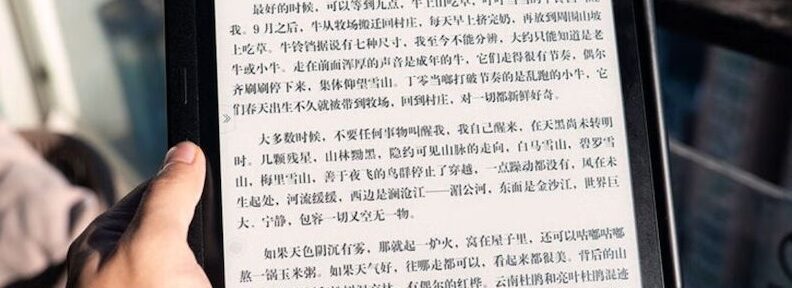 最好的时候，可以等到九点，牛上山吃草，叮叮当当的
我。9 月之后，牛从牧场搬迁回村庄，每天早上挤完奶，再放到周围山坡
上吃草。牛铃铛据说有七种尺寸，我至今不能分辨，大约只能知道是老
牛或小牛。走在前面浑厚的声音是成年的牛，它们走得很有节奏，偶尔
齐刷刷停下来，集体仰望雪山。丁零当啷打破节奏的是乱跑的小牛，它
们春天出生不久就被带到牧场，回到村庄，对一切都新鲜好奇。
大多数时候，不要任何事物叫醒我，我自己醒来，在天黑尚未转明
时。几颗残星，山林黝黑，隐约可见山脉的走向，白马雪山，碧罗雪
山，梅里雪山，善于夜飞的鸟群停止了穿越，一点躁动都没有，风在未
生起处，河流缓缓，西边是澜沧江——湄公河，东面是金沙江，世界巨
大、宁静，包容一切又空无一物。
如果天色阴沉有雾，那就起一炉火，窝在屋子里，还可以咕嘟咕嘟
熬一锅玉米粥。如果天气好，往哪走都可以，看起来都很美。背后的山
有偶尔的红桦。云南杜鹃和亮叶杜鹃混迹